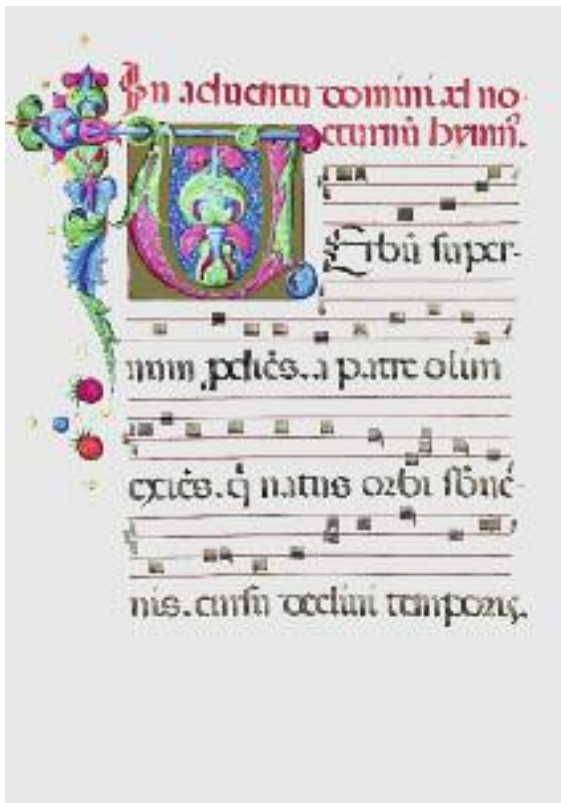 In aduentu domini. ad no-
cturnū hymn̄.
VErbū super-
num pdiēs. a patre olim
exiēs. q̄ natus orbi sbuē-
nis. cursu declini temporis.